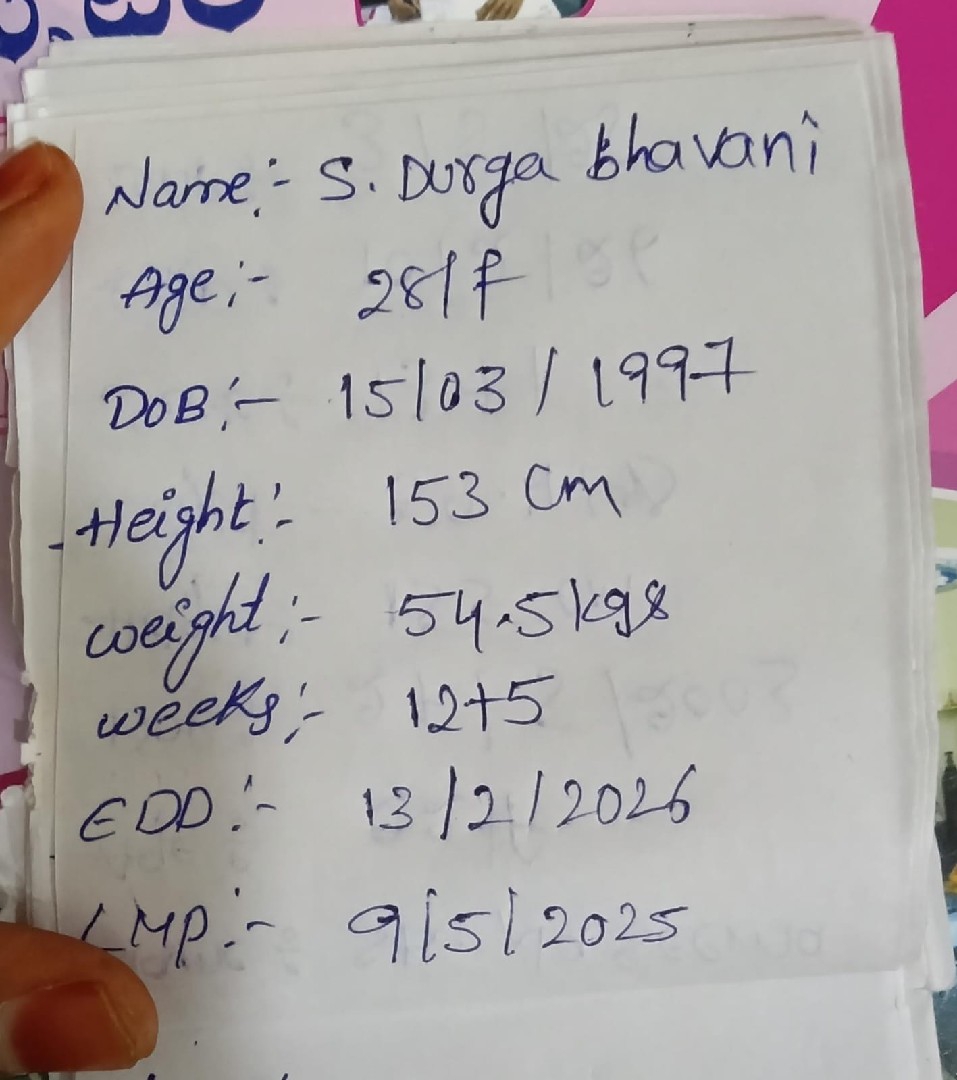 Name:- S. Durga Bhavani
Age:- 28/F
DOB:- 15/03/1997
Height:- 153 cm
weight:- 54.5 kgs
weeks:- 12+5
EDD:- 13/2/2026
LMP:- 9/5/2025